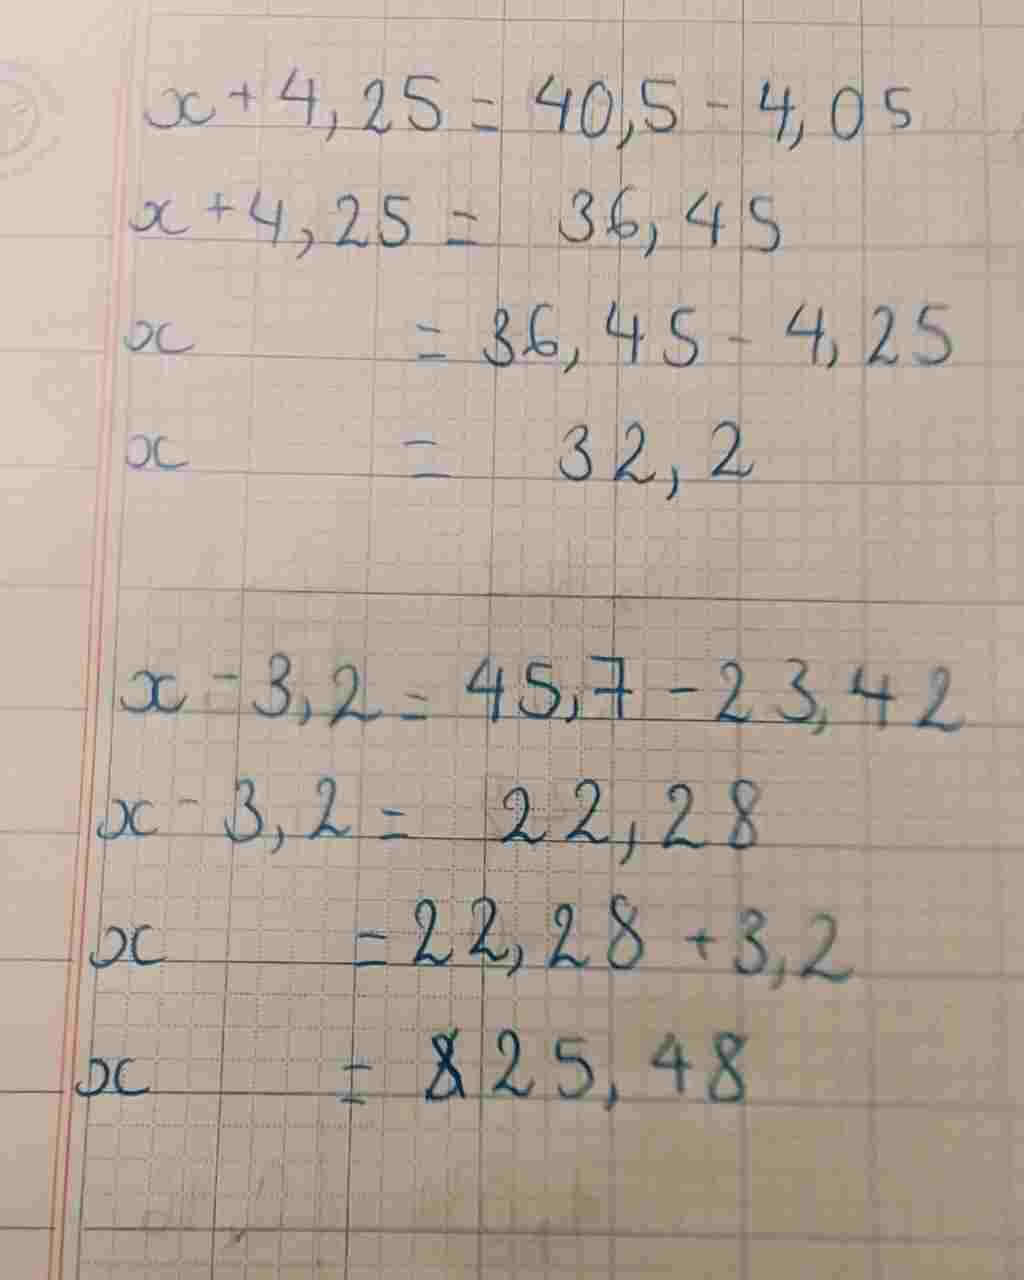 x + 4,25 = 40,5 - 4,05
x + 4,25 = 36,45
x = 36,45 - 4,25
x = 32,2
x - 3,2 = 45,7 - 23,42
x - 3,2 = 22,28
x = 22,28 + 3,2
x = 25,48